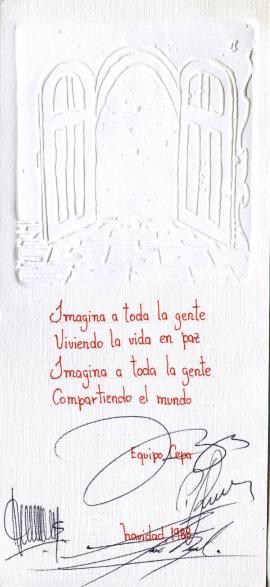 Imagina a toda la gente
Viviendo la vida en paz
Imagina a toda la gente
Compartiendo el mundo
Equipo Cepa
Navidad 1988